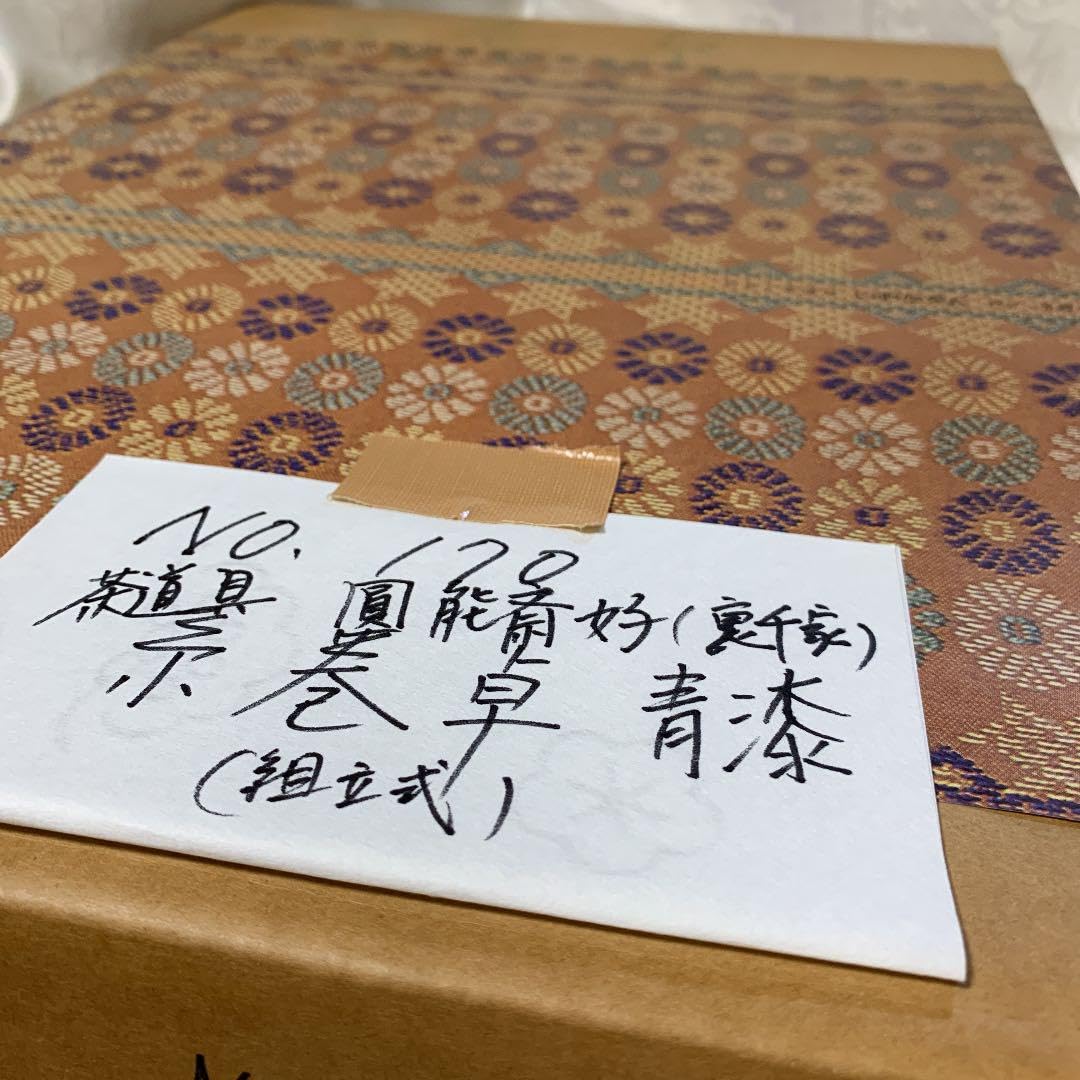 NO. 170
茶道具 圓能斎好(裏千家)
糸巻卓 青漆
(組立式)